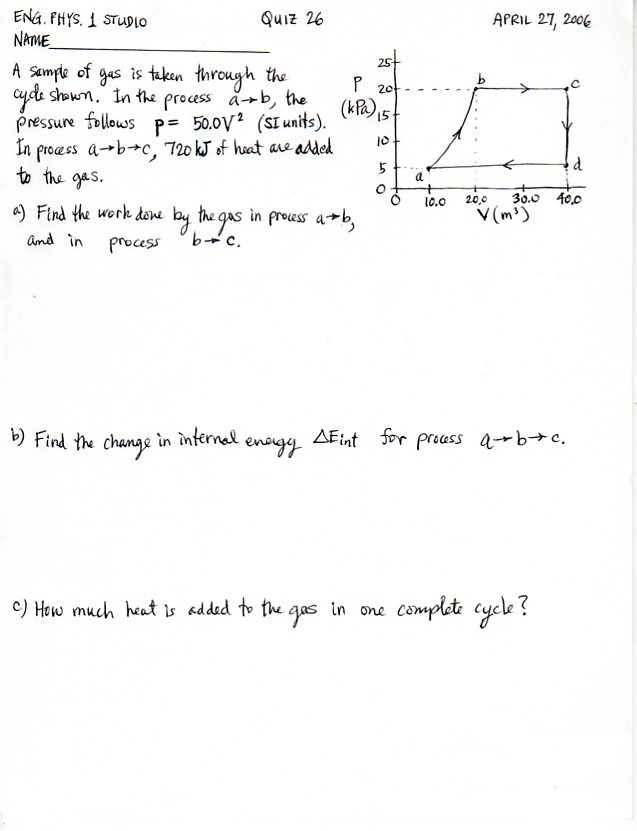 ENG. PHYS. 1 STUDIO QUIZ 26 APRIL 27, 2006
NAME
A sample of gas is taken through the
cycle shown. In the process a→b, the
pressure follows p= 50.0V² (SI units).
In process a→b→c, 720 kJ of heat are added
to the gas.
a) Find the work done by the gas in process a→b,
and in process b→c.
P
(kPa)
25
20
15
10
5
0
a
b
c
d
0 10.0 20.0 30.0 40.0
V (m³)
b) Find the change in internal energy ΔEint for process a→b→c.
c) How much heat is added to the gas in one complete cycle?